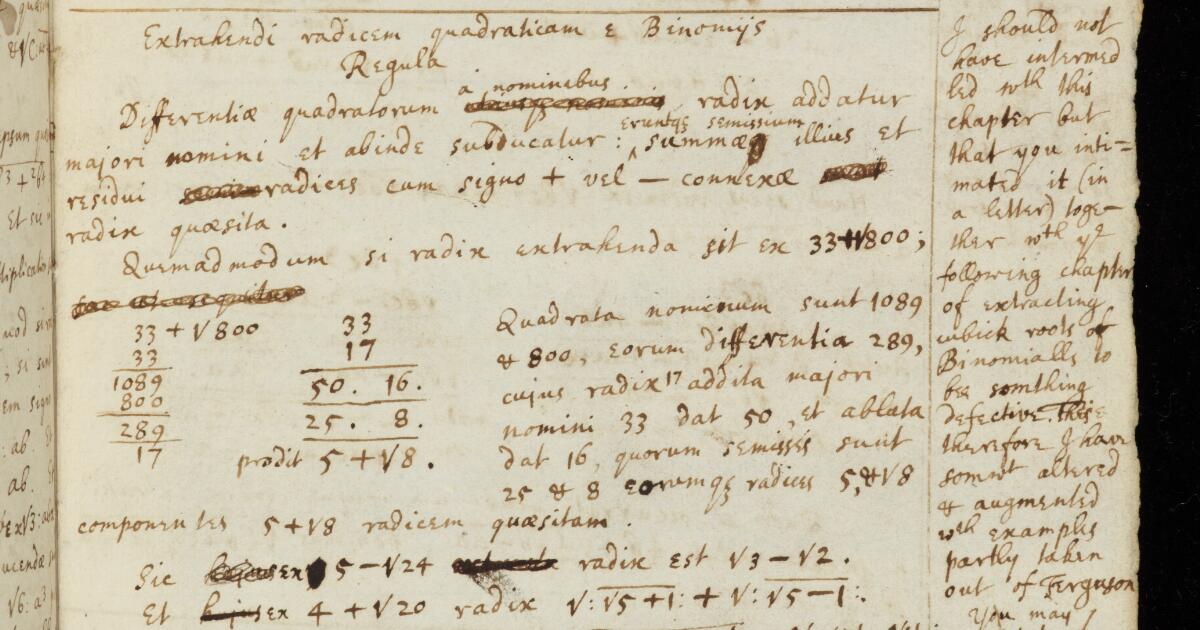 Extrahendi radicem quadraticam e Binomijs
Regula
a nominibus
Differentiæ quadratorum radix addatur
eruntqꝫ semissium
majori nomini et abinde subducatur : summæ illius et
residui radices cum signo + vel − connexæ
radix quæsita .
Quemadmodum si radix extrahenda sit ex 33+√800 ;
33 + √800
33
1089
800
289
17
33
17
50. 16.
25. 8.
prodit 5 + √8 .
Quadrata nominum sunt 1089
& 800, eorum differentia 289,
cujus radix 17 addita majori
nomini 33 dat 50, et ablata
dat 16, quorum semisses sunt
25 & 8 eorumqꝫ radices 5, & √8
componentes 5+√8 radicem quæsitam .
Sic ex 5−√24 radix est √3−√2 .
Et ex 4+√20 radix √:√5+1: + √:√5−1:.
I should not
have intermed
led wth this
chapter but
that you inti=
mated it (in
a letter) toge-
ther wth ye
following chapter
of extracting
cubick roots of
Binomialls to
bee somthing
defective. this
therefore I have
somwt altered
& augmented
wth examples
partly taken
out of Ferguson
You may